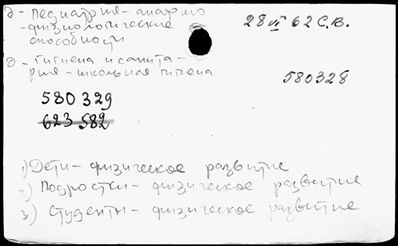 д - Педиатрия - анатомо
- физиологические
способности
28 VI 62 С.В.
д - Гигиена и санита-
рия - школьная гигиена
580328
580329
623582
1) Дети - физическое развитие
2) Подростки - физическое развитие
3) Студенты - физическое развитие